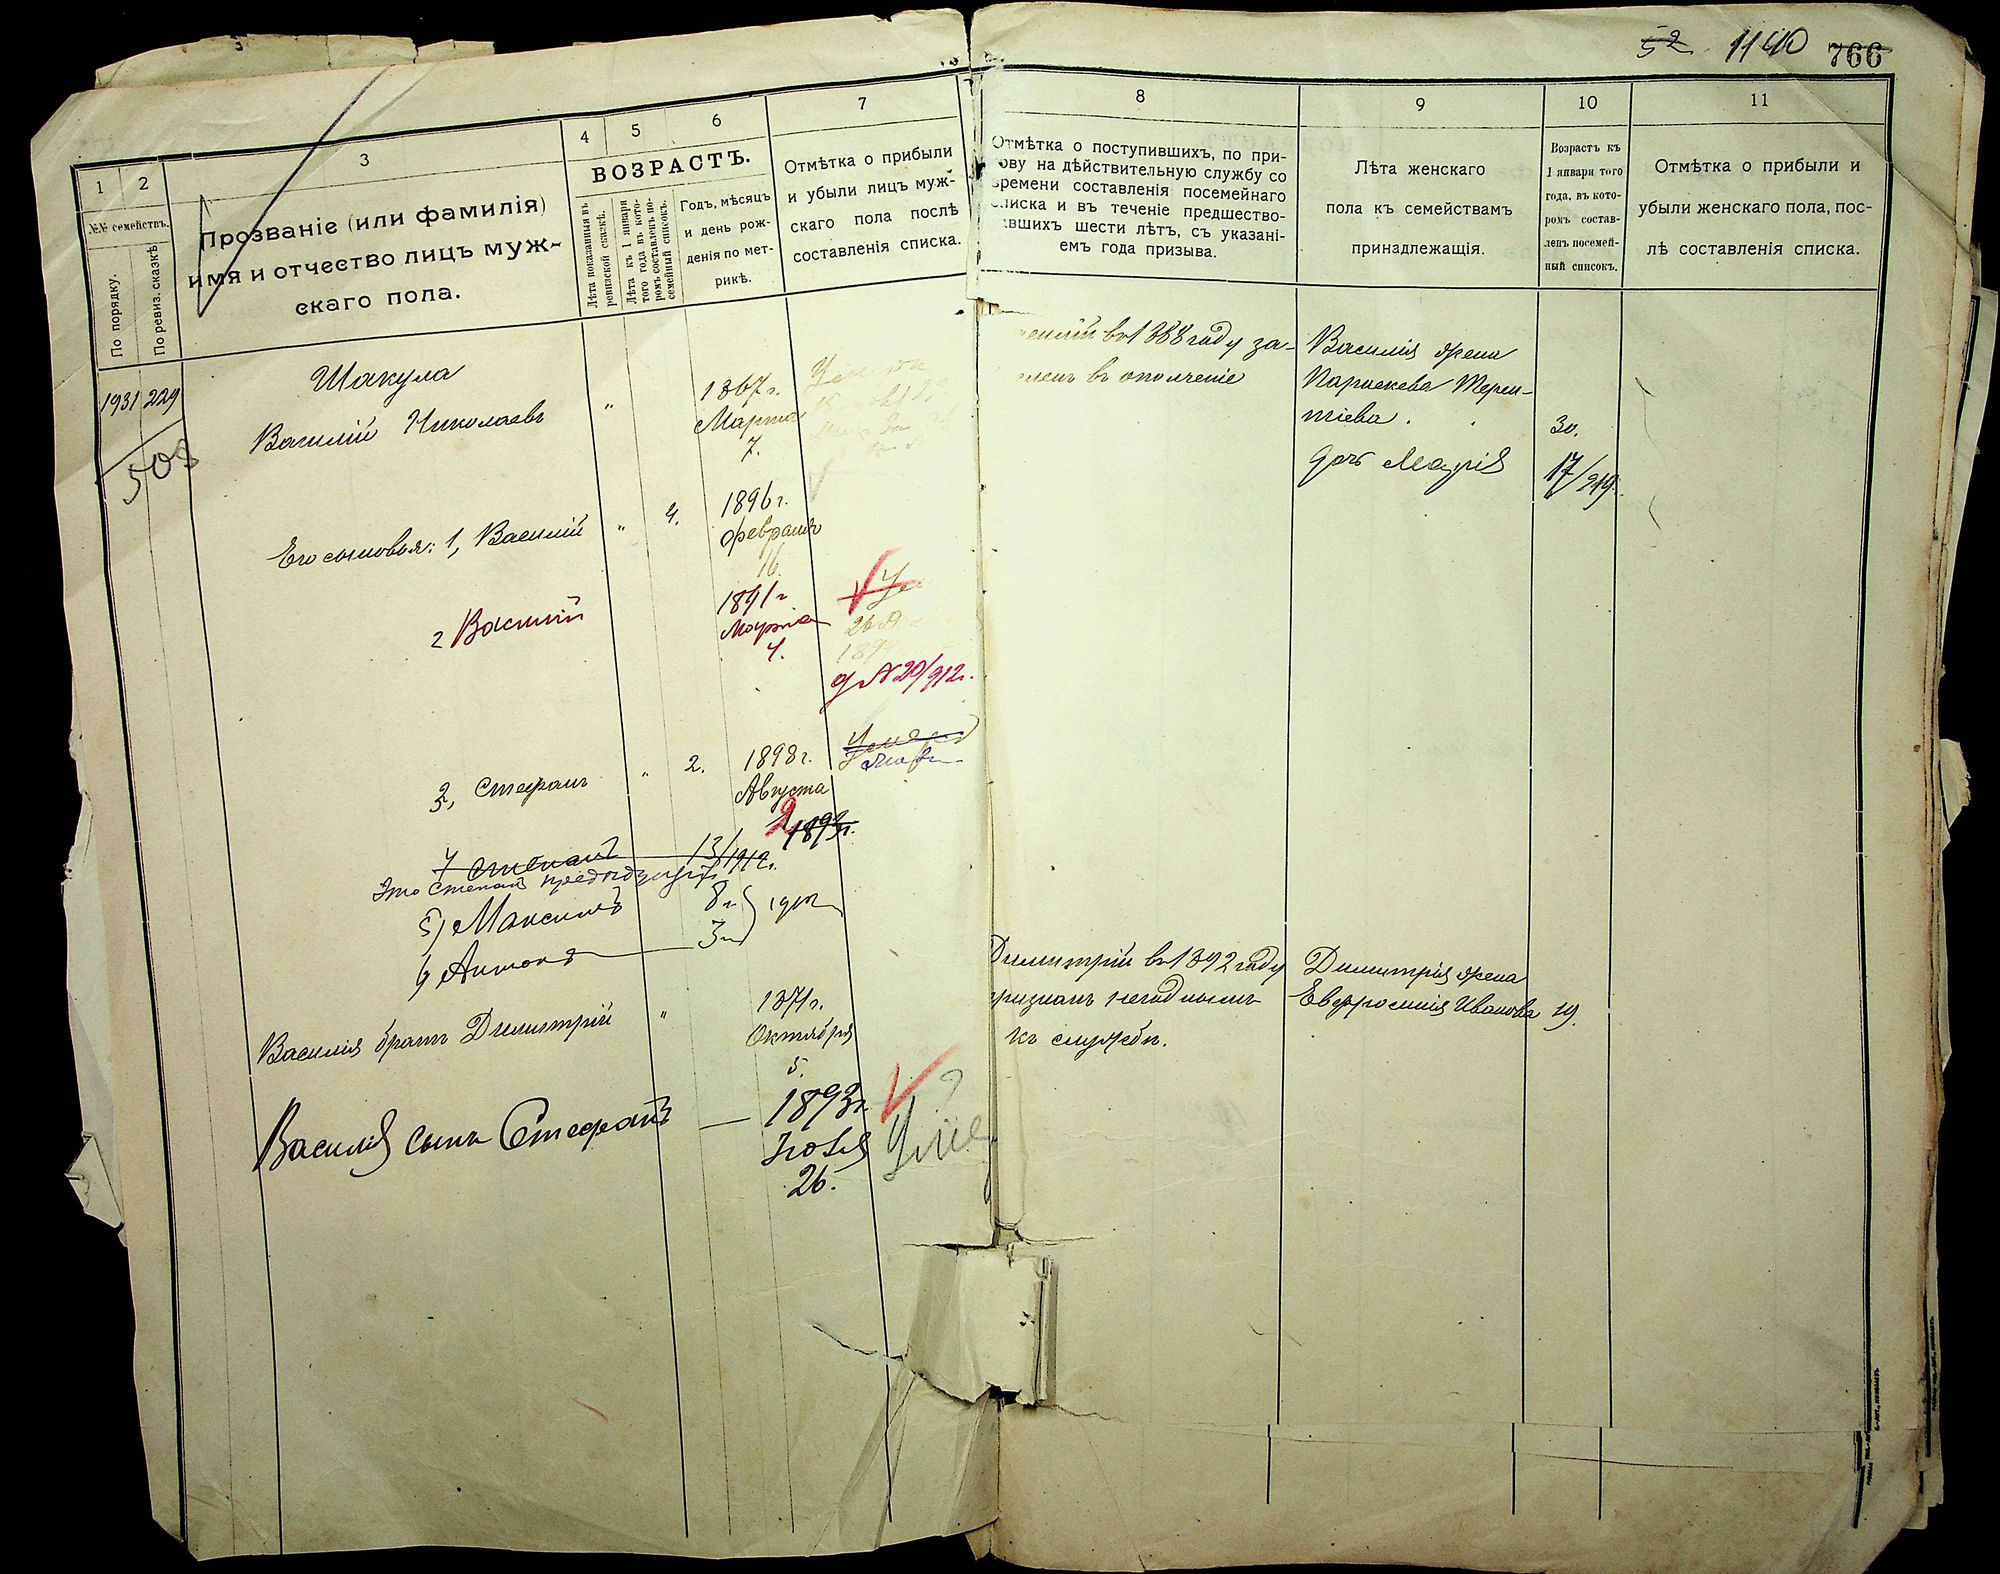 52 1140 766
1 2 3 4 5 6 7
№№ семействъ.
По порядку.
По ревиз. сказкѣ
Прозваніе (или фамилія)
имя и отчество лицъ муж-
скаго пола.
ВОЗРАСТЪ.
Лѣта показанныя въ
ревизской сказкѣ.
Лѣта къ 1 января
того года въ кото-
ромъ составленъ по-
семейный списокъ.
Годъ, мѣсяцъ
и день рож-
денія по мет-
рикѣ.
Отмѣтка о прибыли
и убыли лицъ муж-
скаго пола послѣ
составленія списка.
1931 229
508
Шакула
Василій Николаевъ "
1867 г.
Марта
7.
Его сыновья: 1, Василій " 4.
1896 г.
февраля
16.
2 Василій
1891 г
Марта
4.
26
д №20/912 г.
3, Стефанъ " 2.
1898 г.
Августа
2
1893 г.
4 Степанъ 13/1912 г.
Это Степанъ предыдущій
5) Максимъ 8 л
6) Антонъ 3 л
Василія братъ Димитрій "
1871 г.
Октября
5.
Василія сынъ Стефанъ —
1893 г.
Ноября
26.
8 9 10 11
Отмѣтка о поступившихъ, по при-
зову на дѣйствительную службу со
времени составленія посемейнаго
списка и въ теченіе предшество-
вавшихъ шести лѣтъ, съ указані-
емъ года призыва.
Лѣта женскаго
пола къ семействамъ
принадлежащія.
Возрастъ къ
1 января того
года, въ кото-
ромъ состав-
ленъ посемей-
ный списокъ.
Отмѣтка о прибыли и
убыли женскаго пола, пос-
лѣ составленія списка.
въ 1888 году за-
въ ополченіе
Василія жена
Параскева Терен-
тіева. 30.
дочь Марія 17/919.
Димитрій въ 1892 году
признанъ негоднымъ
къ службѣ.
Димитрія жена
Евфросинія Иванова 19.